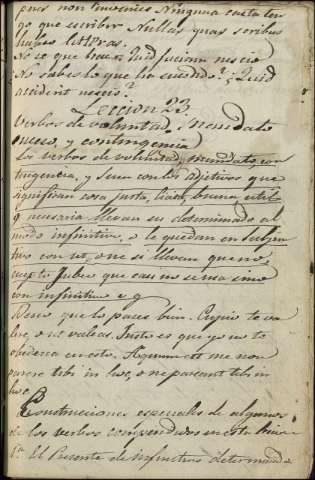 pues non invenies Ninguna carta ten
go que escribir Nullas quas scribas
habes litteras.
No se que hacer Quid faciam nescio
No sabes lo que ha sucedido? ¿Quid
acciderit nescis?
Leccion 23
Verbos de voluntad, mandato
suceso, y contingencia
Los verbos de voluntad, mandato con
tingencia, y Sum con los adjetivos que
significan cosa justa, licita, buena util
y necesaria llevan su determinado al
modo infinitivo, o le quedan en subjun
tivo con ut, o ne si llevan que no,
excepto Jubeo que casi no se usa sino
con infinitivo e g
Deseo que lo pases bien. Cupio te va
lere, o ut valeas. Justo es que yo no te
obedezca en esto. Aequum est me non
parere tibi in hoc, o ne paream tibi in
hoc
Construcciones especiales de algunos
de los verbos comprendidos en esta
1ª El Presente de infinitivo determinado